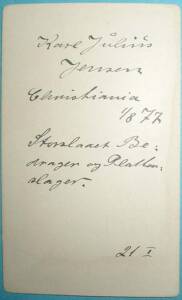 Karl Julius
Jensen
Christiania
1/8 77
Storslaaet Be-
drager og Platten-
slager.
21 I